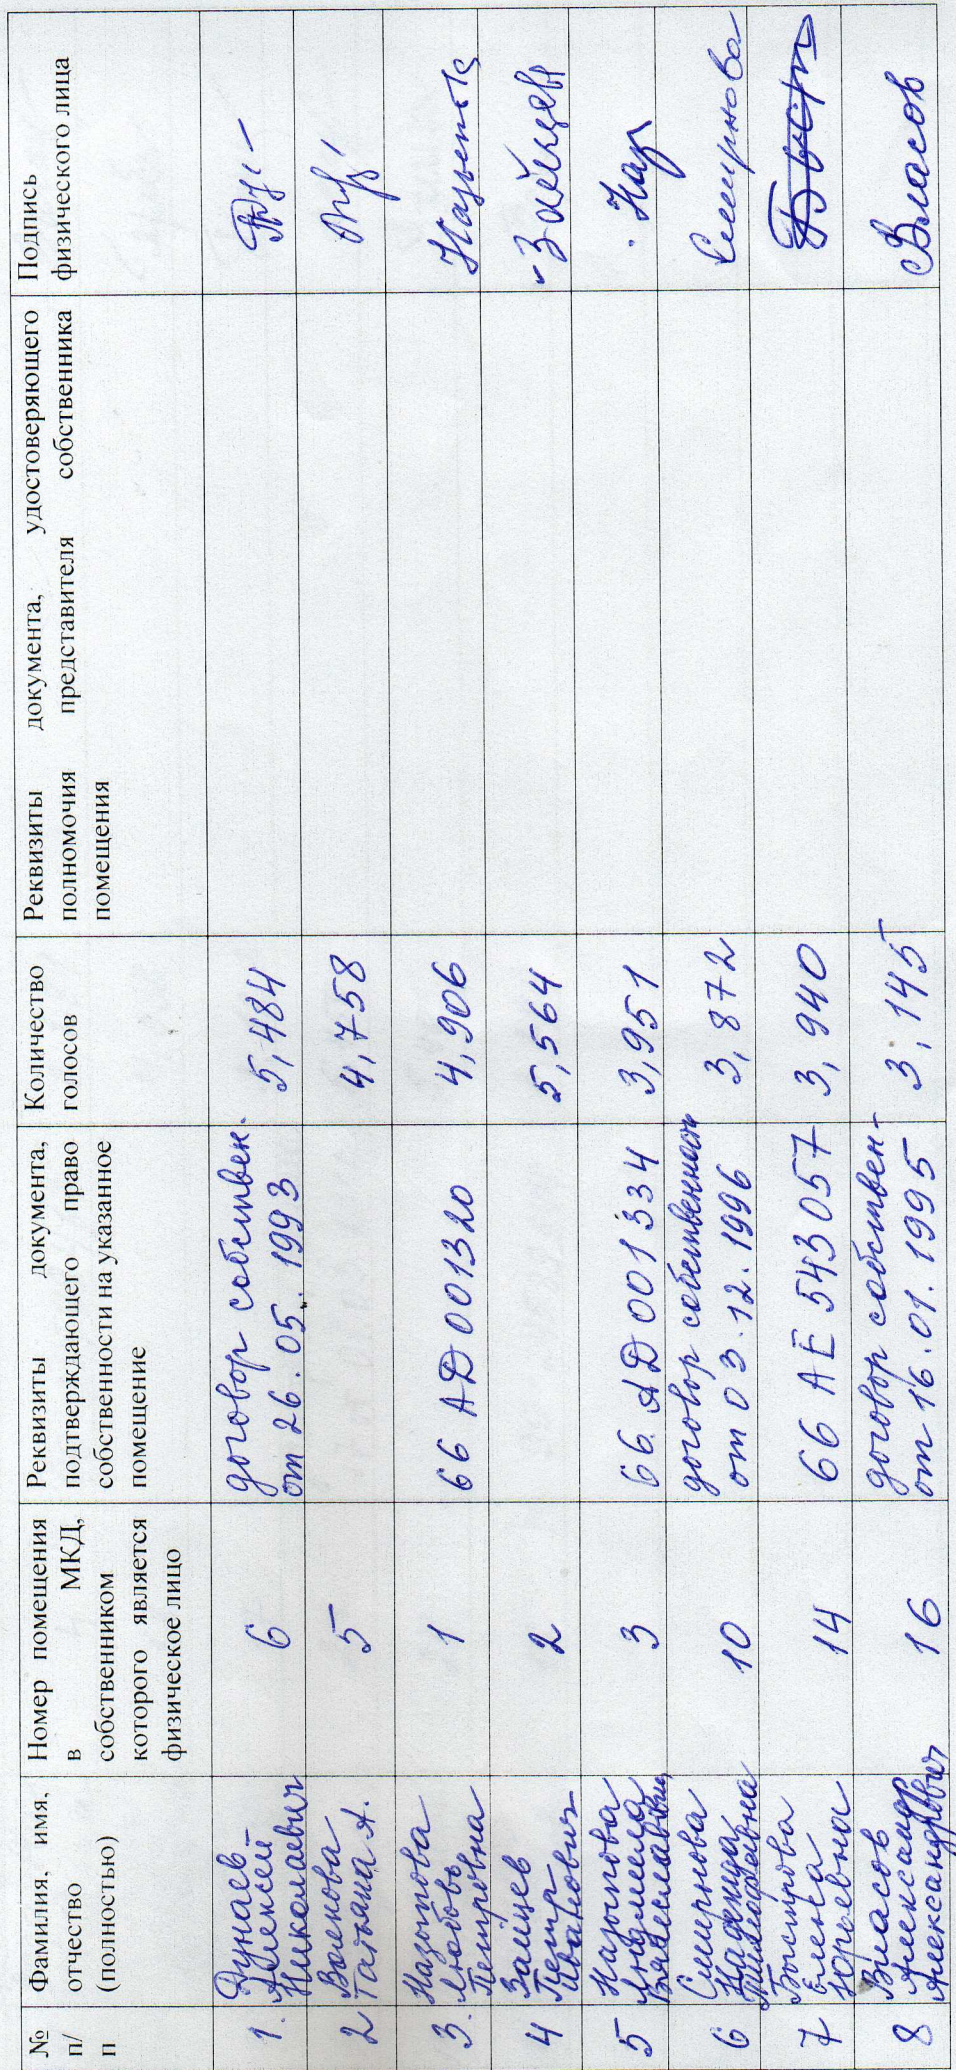 № п/п
Фамилия, имя, отчество (полностью)
Номер помещения в МКД, собственником которого является физическое лицо
Реквизиты документа, подтверждающего право собственности на указанное помещение
Количество голосов
Реквизиты документа, удостоверяющего полномочия представителя собственника помещения
Подпись физического лица
1. Дунаев Алексей Николаевич 6 договор собствен. от 26.05.1993 5,484
2 Татьяна А. 5 4,758
3. Назытова Любовь Петровна 1 66 АД 001320 4,906
4 Зайцев Петр Иванович 2 5,564 Зайцев
5 Назытова Людмила Вячеславовна 3 66 АД 001334 3,951 Наз
6 Смирнова Надежда Тимофеевна 10 договор собственности от 03.12.1996 3,872 Смирнова
7 Быстрова Елена Юрьевна 14 66 АЕ 543057 3,940 Быст
8 Власов Александр Александрович 16 договор собствен- от 16.01.1995 3,145 Власов